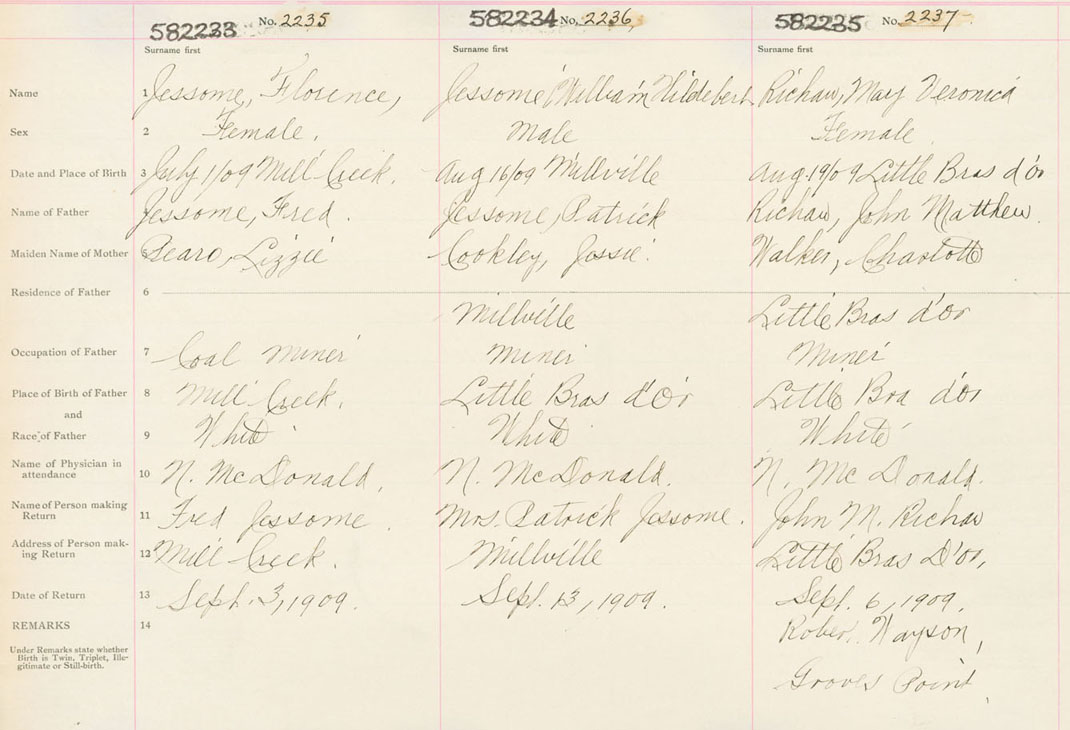 582233 No. 2235 582234 No. 2236 582235 No. 2237
Surname first Surname first Surname first
Name 1 Jessome, Florence, Jessome, William Hildebert Richaw, May Veronica
Sex 2 Female. Male Female
Date and Place of Birth 3 July 1/09 Mill Creek. Aug 16/09 Millville Aug. 19/09 Little Bras d'or
Name of Father Jessome, Fred. Jessome, Patrick Richaw, John Matthew.
Maiden Name of Mother 5 Lizzie Cookley, Jessie. Walker, Charlotte
Residence of Father 6
Millville Little Bras d'or
Occupation of Father 7 Coal miner miner Miner
Place of Birth of Father 8 Mill Creek. Little Bras d'Or Little Bra d'or
and
Race of Father 9 White White White
Name of Physician in
attendance 10 N. McDonald. N. McDonald. N. McDonald.
Name of Person making
Return 11 Fred Jessome. Mrs. Patrick Jessome. John M. Richaw
Address of Person mak-
ing Return 12 Mill Creek. Millville Little Bras D'or,
Date of Return 13 Sept. 3, 1909. Sept. 13, 1909. Sept. 6, 1909.
REMARKS 14 Rober. Wayson,
Under Remarks state whether
Birth is Twin, Triplet, Ille-
gitimate or Still-birth.
Groves Point